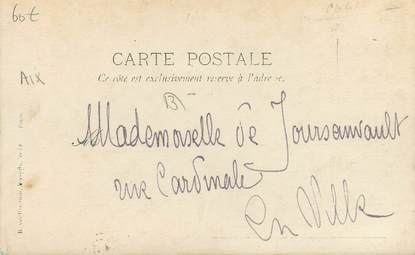 60€
CARTE POSTALE
Ce côté est exclusivement réservé à l'adresse.
AIX
Mademoiselle de Joursanvault
rue Cardinale
En Ville